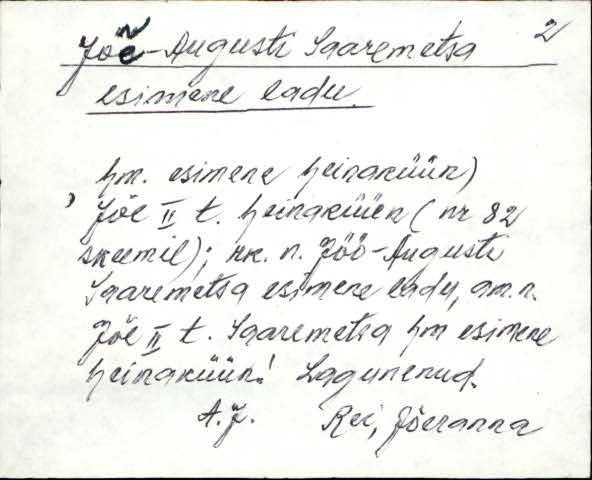 Jõe-Augusti Saaremetsa 2
esimene ladu.
hm. esimene heinaküün)
, Jõe II t. heinaküün (nr 82
skeemil); rk. n. Jöö-Augusti
Saaremetsa esimene ladu, am. n.
Jõe II t. Saaremetsa hm esimene
heinaküün! Lagunenud.
A. J. Rei, Jõeranna